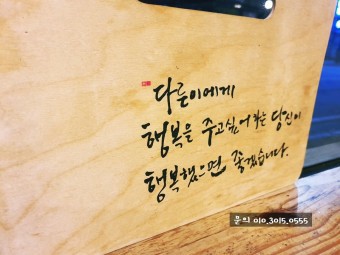 다른이에게
행복을 주고싶어 하는 당신이
행복했으면 좋겠습니다.
문의 010_3015_0555